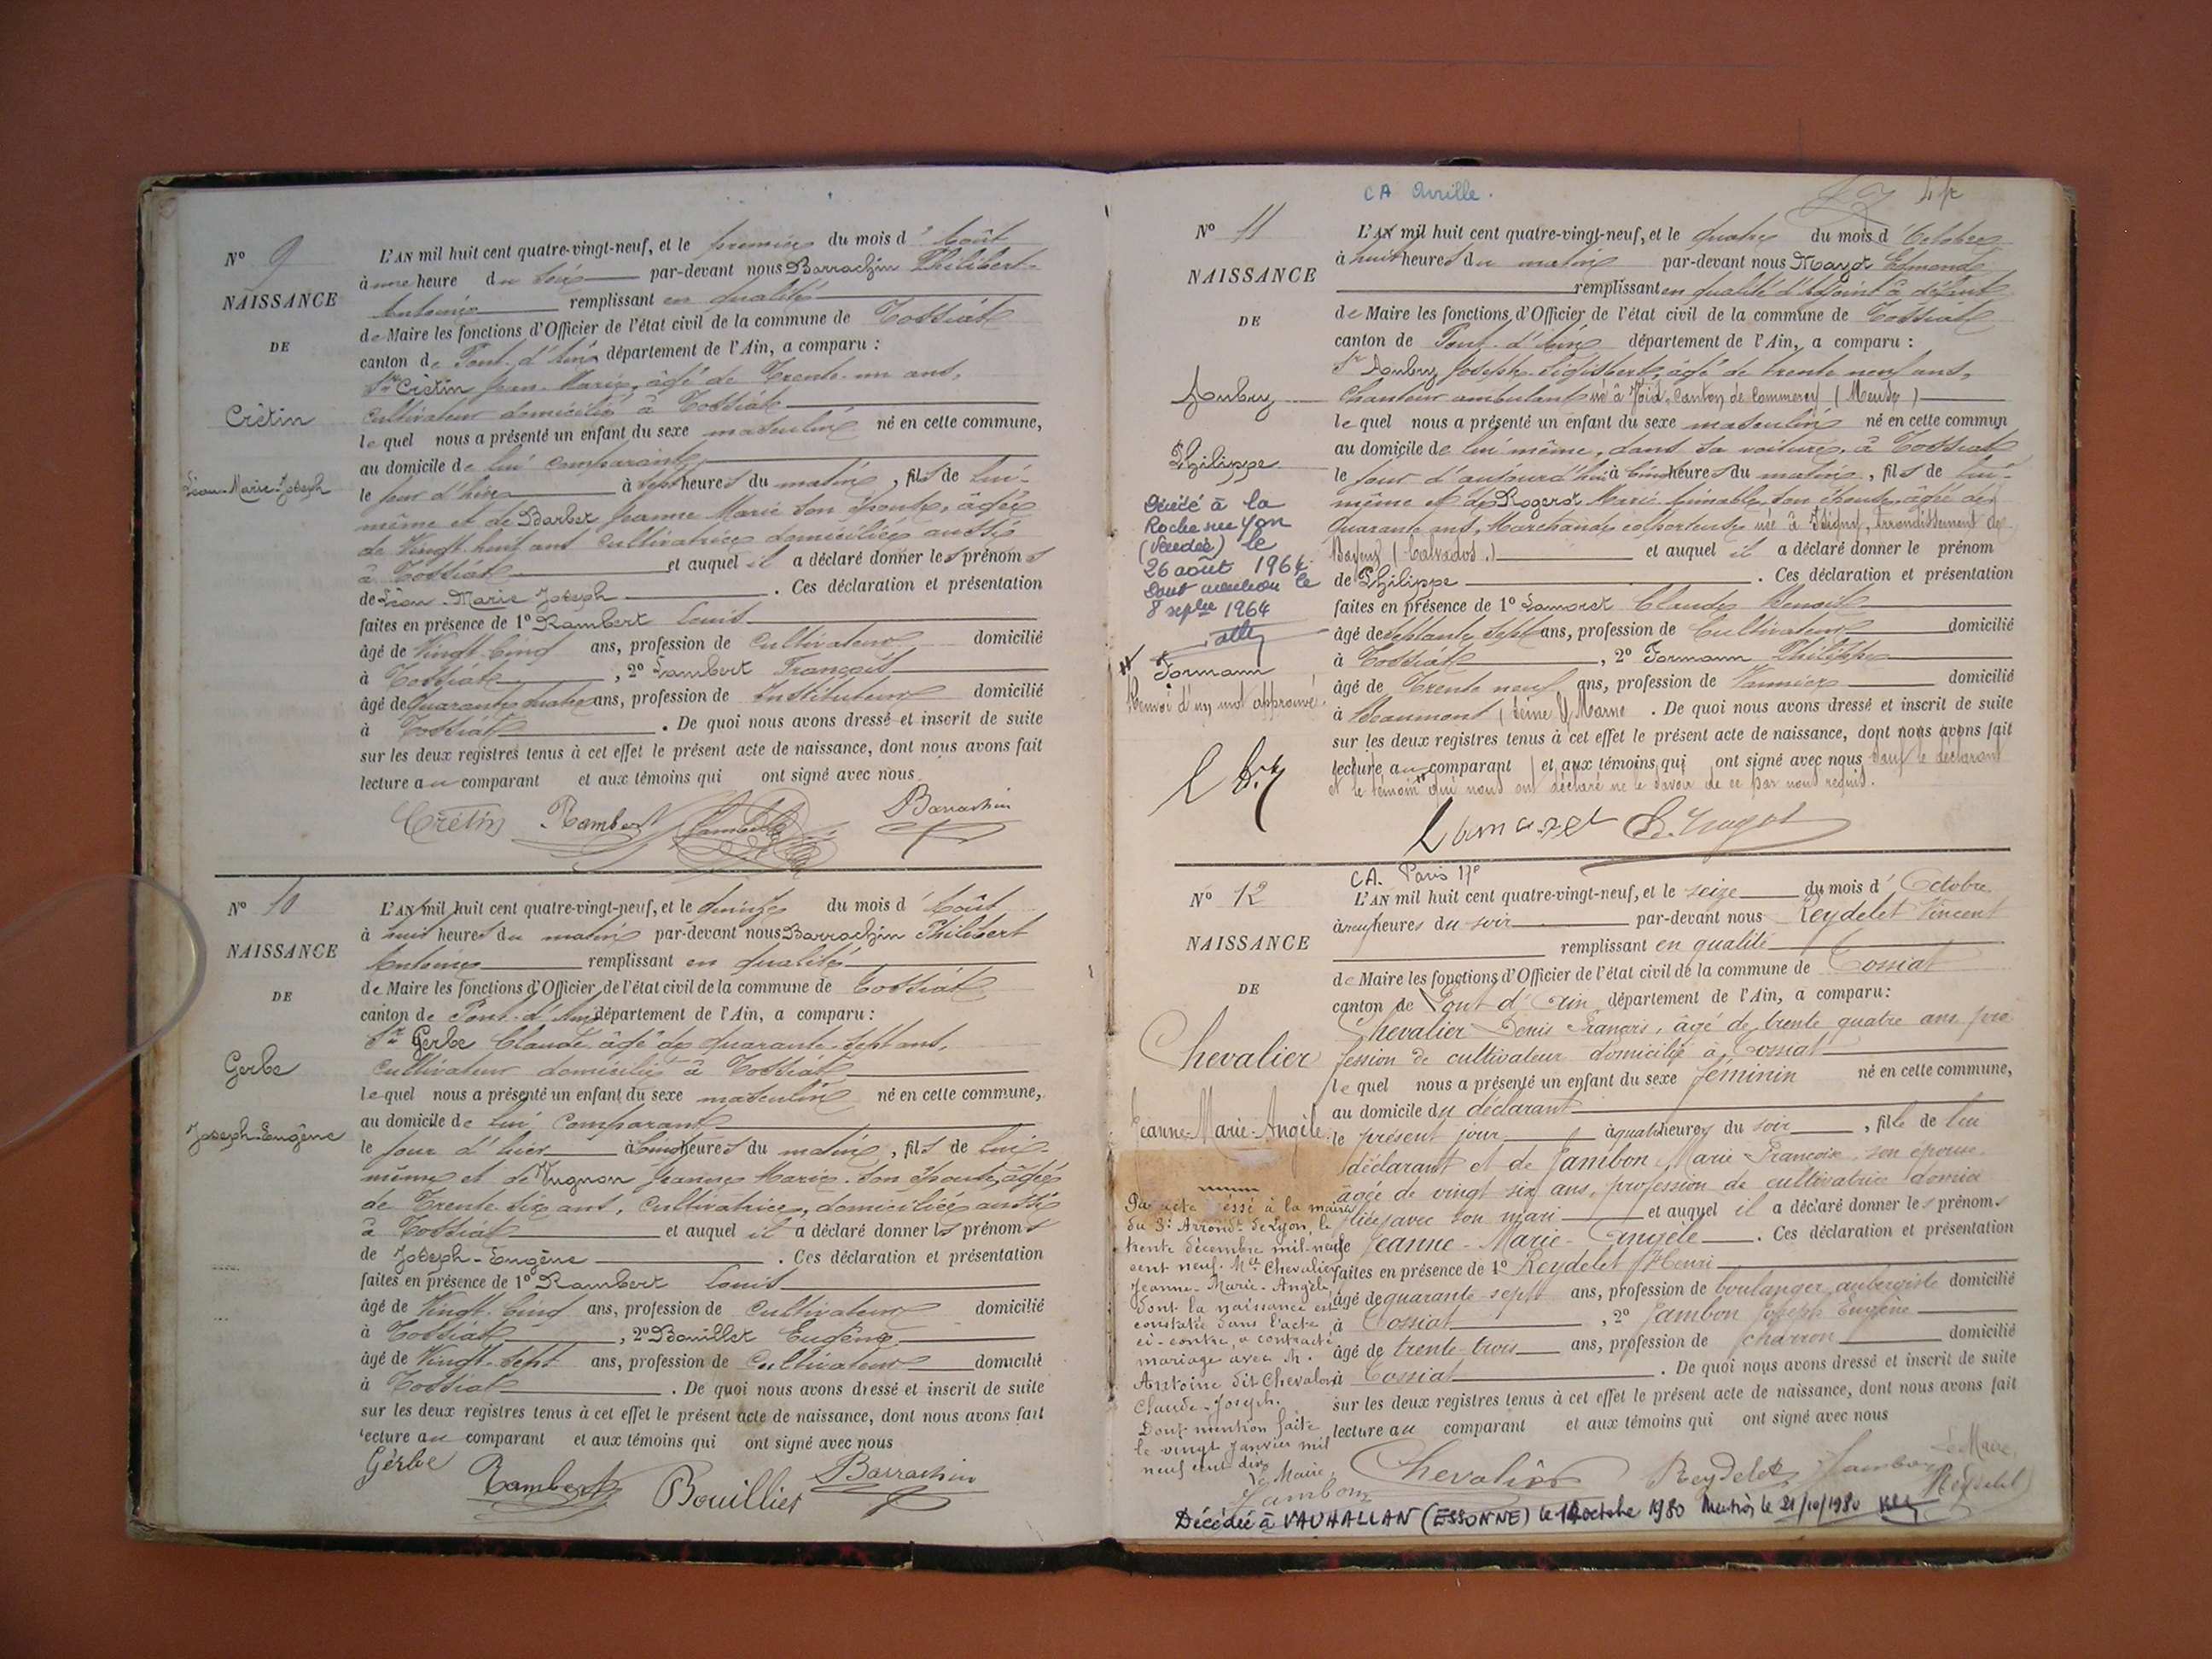 N° 9
NAISSANCE
DE
Crétin
Léon-Marie-Joseph
L'AN mil huit cent quatre-vingt-neuf, et le premier du mois d'Août
à une heure du soir par-devant nous Barrachin Philibert
Antoine remplissant en qualité
de Maire les fonctions d'Officier de l'état civil de la commune de Tossiat
canton de Pont-d'Ain département de l'Ain, a comparu :
Sr Crétin Jean-Marie, âgé de Trente-un ans,
Cultivateur domicilié à Tossiat
lequel nous a présenté un enfant du sexe masculin né en cette commune,
au domicile de lui comparant
le jour d'hier à sept heures du matin, fils de lui-
même et de Barbet Jeanne Marie son épouse, âgée
de Vingt huit ans cultivatrice domiciliée aussi
à Tossiat et auquel il a déclaré donner les prénoms
de Léon-Marie Joseph . Ces déclaration et présentation
faites en présence de 1° Rambert Louis
âgé de Vingt-Cinq ans, profession de Cultivateur domicilié
à Tossiat , 2° Lambert François
âgé de Quarante quatre ans, profession de Instituteur domicilié
à Tossiat . De quoi nous avons dressé et inscrit de suite
sur les deux registres tenus à cet effet le présent acte de naissance, dont nous avons fait
lecture au comparant et aux témoins qui ont signé avec nous
Crétin Rambert Lambert Barrachin
N° 10
NAISSANCE
DE
Gerbe
Joseph-Eugène
L'AN mil huit cent quatre-vingt-neuf, et le quinze du mois d'Août
à huit heures du matin par-devant nous Barrachin Philibert
Antoine remplissant en qualité
de Maire les fonctions d'Officier de l'état civil de la commune de Tossiat
canton de Pont-d'Ain département de l'Ain, a comparu :
Sr Gerbe Claude âgé de quarante-sept ans,
Cultivateur domicilié à Tossiat
lequel nous a présenté un enfant du sexe masculin né en cette commune,
au domicile de lui Comparant
le jour d'hier à Cinq heures du matin, fils de lui-
même et de Vugnon Jeanne Marie son épouse, âgée
de Trente-six ans, Cultivatrice, domiciliée aussi
à Tossiat et auquel il a déclaré donner les prénoms
de Joseph-Eugène . Ces déclaration et présentation
faites en présence de 1° Rambert Louis
âgé de Vingt-Cinq ans, profession de Cultivateur domicilié
à Tossiat , 2° Bouillet Eugène
âgé de Vingt-Sept ans, profession de Cultivateur domicilié
à Tossiat . De quoi nous avons dressé et inscrit de suite
sur les deux registres tenus à cet effet le présent acte de naissance, dont nous avons fait
lecture au comparant et aux témoins qui ont signé avec nous
Gerbe Rambert Bouillet Barrachin
CA Avrille.
N° 11
NAISSANCE
DE
Aubry
Philippe
Décédé à la
Roche sur Yon
(Vendée) le
26 août 1964.
Dont mention le
8 septbre 1964
Formann
Renvoi d'un mot approuvé.
L'AN mil huit cent quatre-vingt-neuf, et le quatre du mois d'Octobre
à huit heures du matin par-devant nous Mayot Edmond
remplissant en qualité d'Adjoint à défaut
de Maire les fonctions d'Officier de l'état civil de la commune de Tossiat
canton de Pont-d'Ain département de l'Ain, a comparu :
Sr Aubry Joseph Sigisbert, âgé de trente neuf ans,
Chanteur ambulant né à Void, Canton de Commercy (Meuse)
lequel nous a présenté un enfant du sexe masculin né en cette commun
au domicile de lui même, dans sa voiture, à Tossiat
le jour d'aujourd'hui à Cinq heures du matin, fils de lui-
même et de Rogerot Marie Aimable, son épouse, âgée de
Quarante ans, Marchande colporteuse née à Isigny, Arrondissement de
Bayeux (Calvados.) et auquel il a déclaré donner le prénom
de Philippe . Ces déclaration et présentation
faites en présence de 1° Lamoret Claude Benoit
âgé de septante sept ans, profession de Cultivateur domicilié
à Tossiat , 2° Formann Philippe
âgé de Trente neuf ans, profession de Vannier domicilié
à Beaumont (Seine & Marne . De quoi nous avons dressé et inscrit de suite
sur les deux registres tenus à cet effet le présent acte de naissance, dont nous avons fait
lecture au comparant et aux témoins qui ont signé avec nous sauf le déclarant
et le témoin qui nous ont déclaré ne le savoir de ce par nous requis.
CA. Paris 17e
N° 12
NAISSANCE
DE
Chevalier
Jeanne-Marie-Angèle
Par acte dressé à la mairie
du 3e Arrondt de Lyon, le
trente décembre mil-neuf
cent neuf. Mlle Chevalier
Jeanne-Marie-Angèle
dont la naissance est
constatée dans l'acte
ci-contre, a contracté
mariage avec M.
Antoine dit Chevalon
Claude-Joseph.
Dont mention faite
le vingt janvier mil
neuf cent dix
Le Maire,
Jambon
L'AN mil huit cent quatre-vingt-neuf, et le seize du mois d'Octobre
à neuf heures du soir par-devant nous Reydelet Vincent
remplissant en qualité
de Maire les fonctions d'Officier de l'état civil de la commune de Tossiat
canton de Pont d'Ain département de l'Ain, a comparu :
Chevalier Denis François, âgé de trente quatre ans pro
fession de cultivateur domicilié à Tossiat
lequel nous a présenté un enfant du sexe féminin né en cette commune,
au domicile du déclarant
le présent jour à quatre heures du soir , fille de lui
déclarant et de Jambon Marie Françoise, son épouse
âgée de vingt six ans, profession de cultivatrice domici
liée avec son mari et auquel il a déclaré donner les prénoms
de Jeanne-Marie-Angèle . Ces déclaration et présentation
faites en présence de 1° Reydelet Henri
âgé de quarante sept ans, profession de boulanger, aubergiste domicilié
à Tossiat , 2° Jambon Joseph Eugène
âgé de trente trois ans, profession de charron domicilié
à Tossiat . De quoi nous avons dressé et inscrit de suite
sur les deux registres tenus à cet effet le présent acte de naissance, dont nous avons fait
lecture au comparant et aux témoins qui ont signé avec nous
Chevalier Reydelet Jambon Le Maire, Reydelet
Décédée à VAUHALLAN (ESSONNE) le 14 octobre 1980 Mention le 21/10/1980